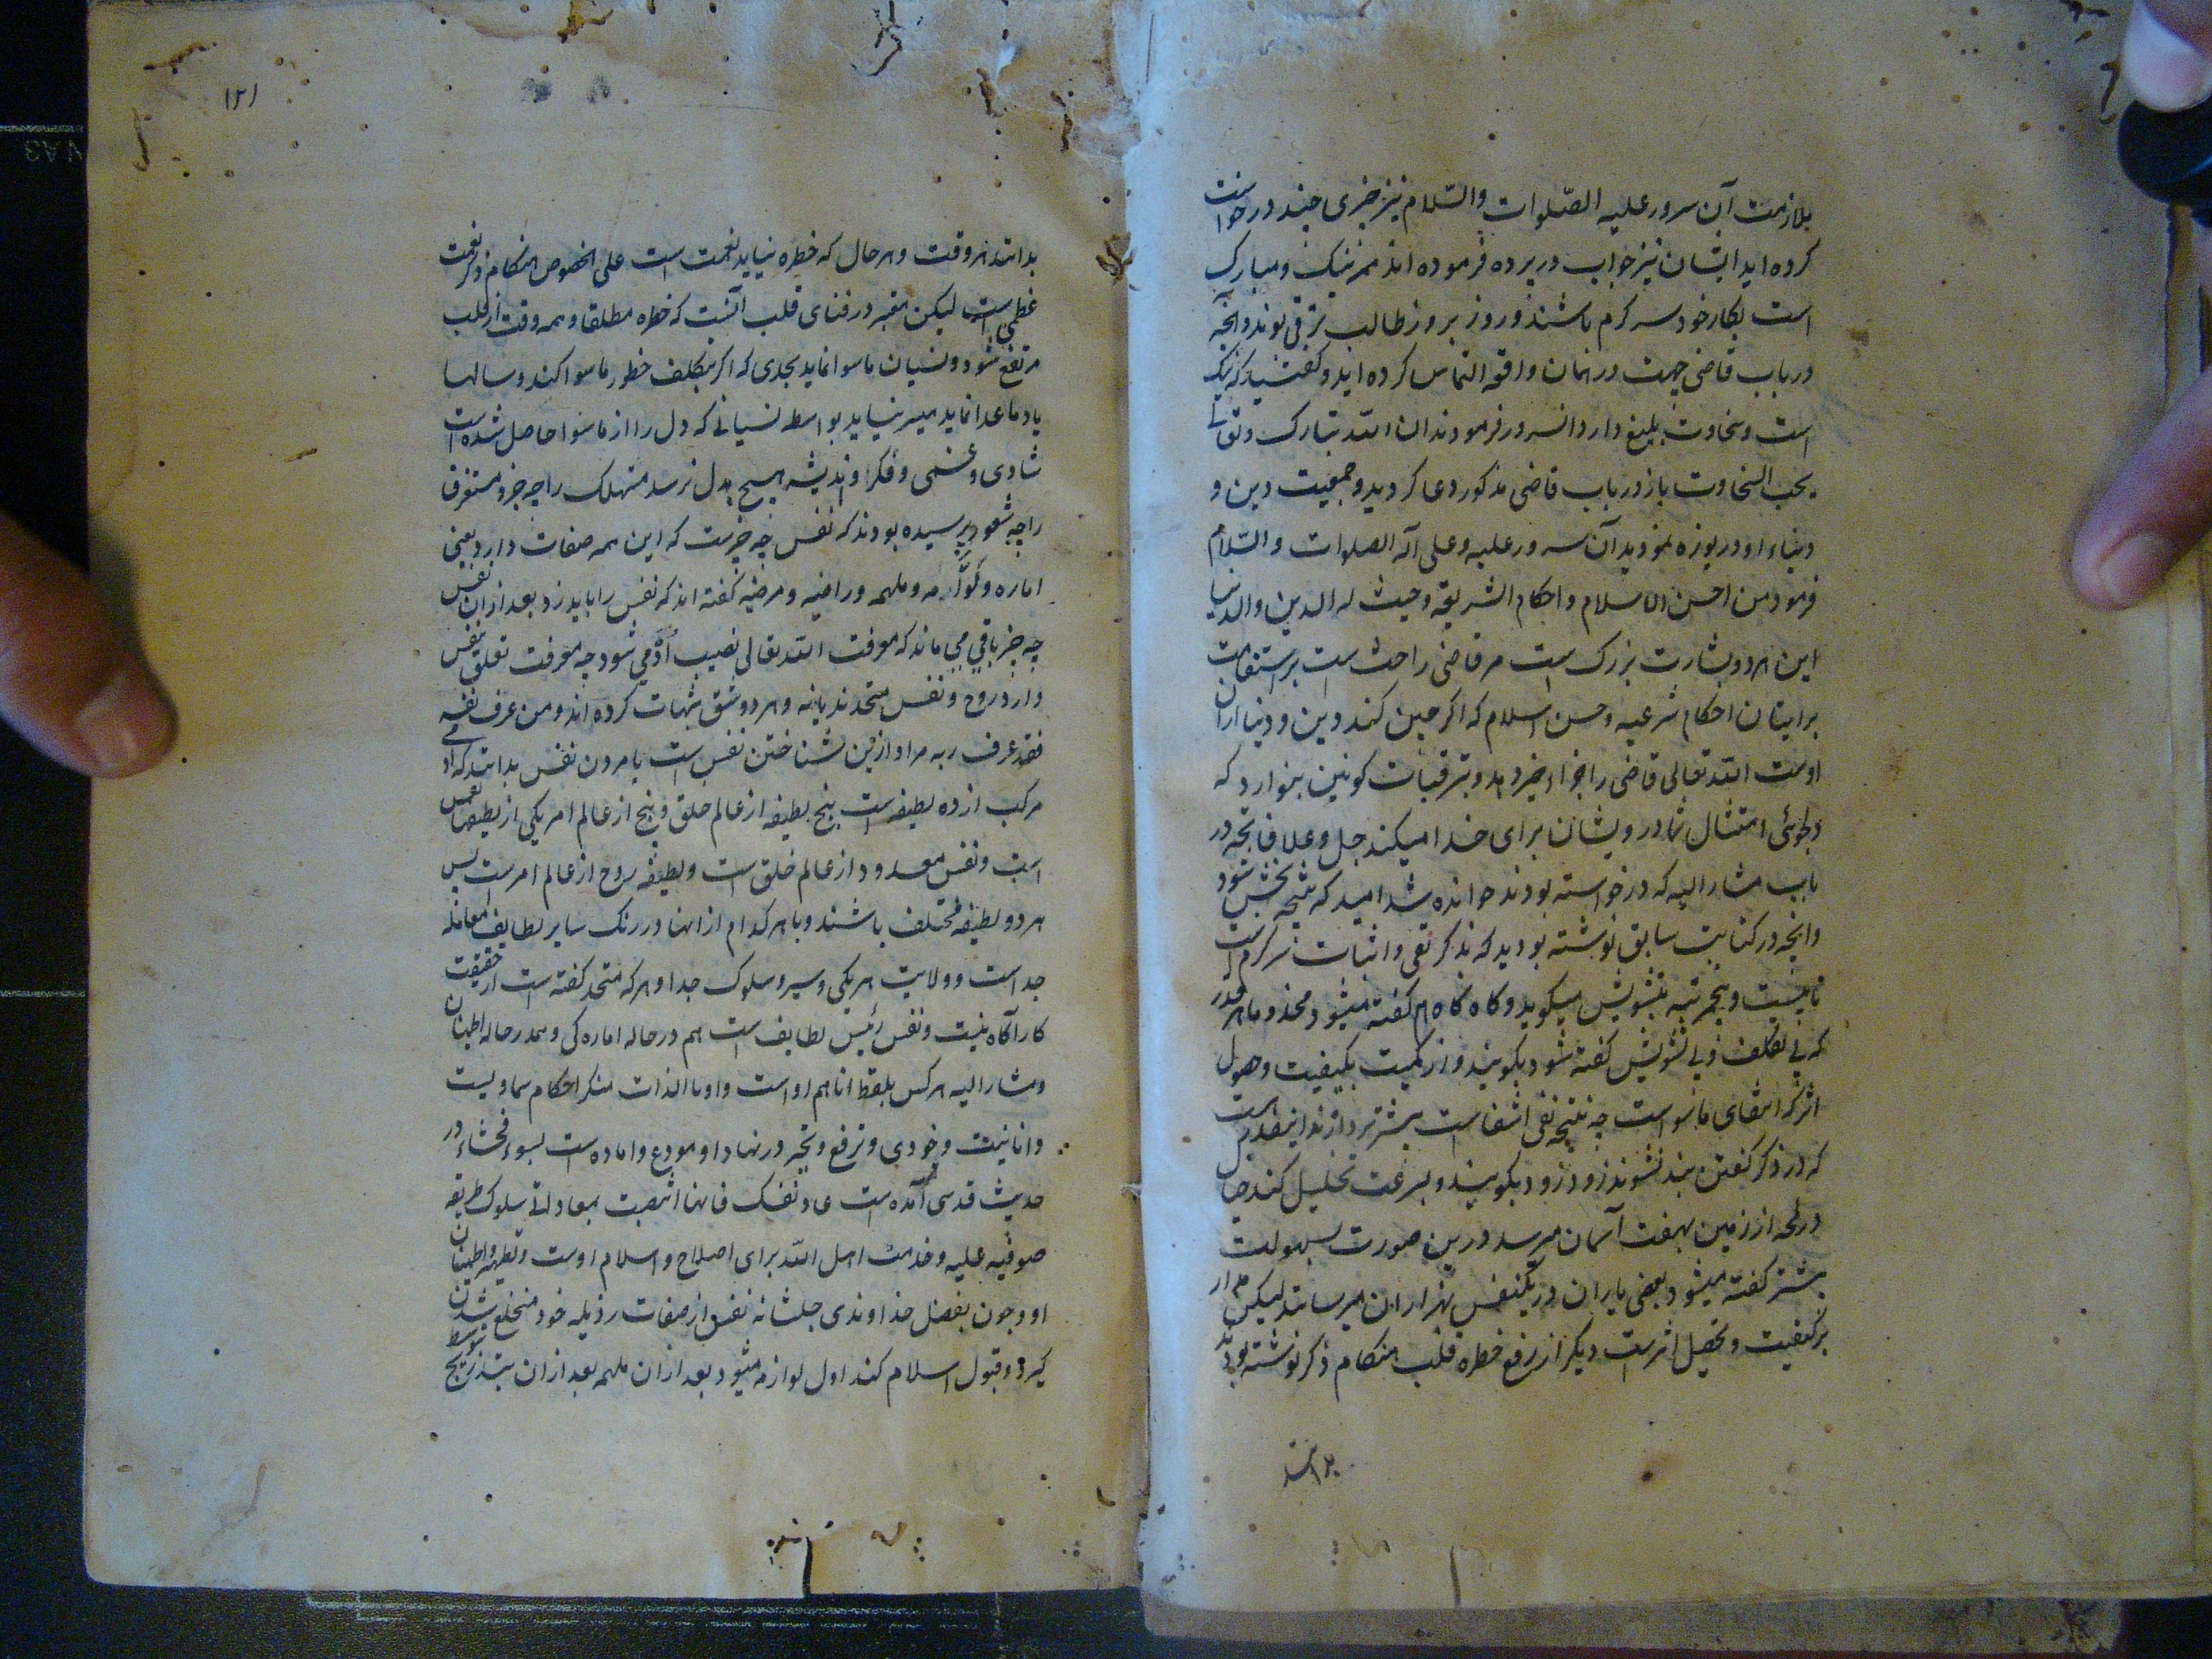 بملازمت آن سرور علیه الصّلوات والسّلام نیز چیزی چند درخواست
کرده اید ایشان نیز جواب در پرده فرموده اند همه نیک و مبارک
است بکار خود سرگرم باشند و روز بروز طالب ترقی بوند و آنچه
در باب قاضی جیت در نهان واقعه التماس کرده اید و گفتید که نیک
است و سخاوت بلیغ دارد آنسرور فرمودند ان الله تبارک و تعالی
یحب السخاوت باز در باب قاضی مذکور دعا کردید و جمعیت دین و
دنیاء او دریوزه نمودید آن سرور علیه و علی آله الصلوات والسّلام
فرمود من احسن الاسلام و احکام الشریعة و حیث له الدین والدنیا
این هر دو بشارت بزرگ است مر قاضی را حث است بر استقامت
بر ایتان احکام شرعیه و حسن اسلام که اگر چنین کند دین و دنیا ازان
اوست الله تعالی قاضی را جزاء خیر دهد و بترقیات کونین بنوازد که
دلجوئی امتثال شما درویشان برای خدا میکند جل و علا فاتحه در
باب مشار الیه که درخواسته بودند خوانده شد امید که نتیجه بخش شود
و آنچه در کتابت سابق نوشته بودید که بذکر نفی و اثبات سرگرم است
تا بیست و پنج مرتبه بتشویش میگوید و گاه گاه هم گفته میشود مخدوما هر قدر
که بی تکلف و بی تشویش گفته شود بگویند و از کمیت بکیفیت و حصول
اثر که انتفای ماسواست چه نتیجه نفی انتفا است بیشتر پردازند اینقدر است
که در ذکر گفتن بند نشوند زود زود بگویند و بسرعت تخلیل کنند خیال
در لمحه از زمین بهفت آسمان میرسد درین صورت بسهولت
بیشتر گفته میشود بعضی یاران در یکنفس بهزاران میرسانند لیکن مدار
بر کیفیت و تحصیل اثر است دیگر از رفع خطره قلب هنگام ذکر نوشته بودند
بدانند
۱۲۱
بدانند هر وقت و هر حال که خطره نیاید نعمت است علی الخصوص هنگام ذکر نعمت
عظمی است لیکن معتبر در فنای قلب آنست که خطره مطلقا و همه وقت از قلب
مرتفع شود و نسیان ماسوا نماید بحدی که اگر بتکلف خطور ماسوا کند و سالها
یاد ماعدا نماید میسر نیاید بواسطه نسیانی که دل را از ماسوا حاصل شده است
شادی و غمی و فکر و اندیشه هیچ بدل نرسد مستهلک را چه خبر و مستغرق
را چه شعور پرسیده بودند که نفس چه چیزست که این همه صفات دارد یعنی
اماره و لوّامه و ملهمه و راضیه و مرضیه گفته اند که نفس را باید زد بعد ازان نفس
چه چیز باقی می ماند که معرفت الله تعالی نصیب آدمی شود چه معرفت تعلق بنفس
دارد روح و نفس متحدند یا نه و هر دو شق شبهات کرده اند و من عرف نفسه
فقد عرف ربه مراد ازین شناختن نفس است یا مردن نفس بدانند که آدمی
مرکب از ده لطیفه است پنج لطیفه از عالم خلق و پنج از عالم امر یکی از لطیفها نفس
است و نفس معدود از عالم خلق است و لطیفه روح از عالم امرست پس
هر دو لطیفه مختلف باشند و با هر کدام ازانها در رنگ سایر لطایف معامله
جداست و ولایت هر یکی و سیر و سلوک جدا و هر که متحد گفته است از حقیقت
کار آگاه نیست و نفس رئیس لطایف است هم در حاله اماره گی و هم در حاله اطمینان
و مشار الیه هر کس بلفظ انا هم او است و او بالذات منکر احکام سماویست
و انانیت و خودی و ترفع و تجبر در نهاد او مودع و اماده است بسوء و فحشاء در
حدیث قدسی آمده است عاد نفسک فانها انتصبت بمعاداتی سلوک طریقه
صوفیه علیه و خدمت اهل الله برای اصلاح و اسلام اوست و تطهیر و اطمینان
او و چون بفضل خداوندی جلشانه نفس از صفات رذیله خود منخلع شدن
گیرد و قبول اسلام کند اول لوامه میشود بعد ازان ملهمه بعد ازان بتدریج بتوسط